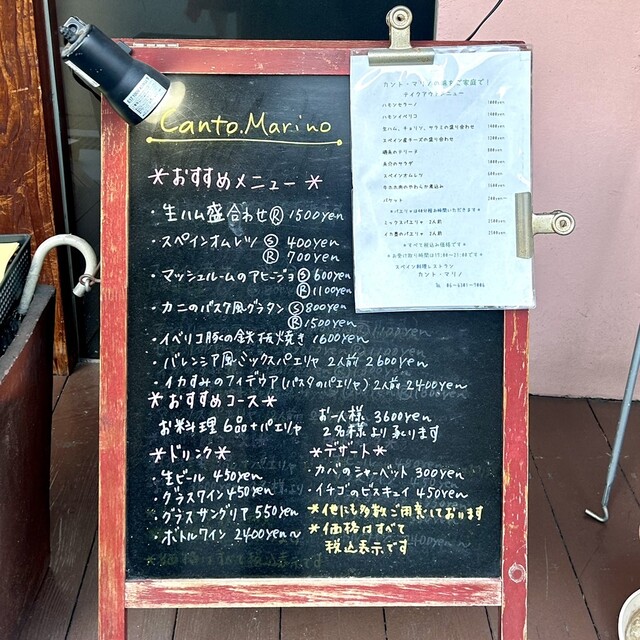 Canto.Marino
*おすすめメニュー*
・生ハム盛合わせ Ⓡ 1500yen
・スペインオムレツ Ⓢ 400yen
Ⓡ 700yen
・マッシュルームのアヒージョ Ⓢ 600yen
Ⓡ 1100yen
・カニのバスク風グラタン Ⓢ 800yen
Ⓡ 1500yen
・イベリコ豚の鉄板焼き 1600yen
・バレンシア風ミックスパエリヤ 2人前 2600yen
・イカすみのフィデウア(パスタのパエリヤ) 2人前 2400yen
*おすすめコース*
お料理 6品+パエリヤ
お一人様 3600yen
2名様より承ります
*ドリンク*
・生ビール 450yen
・グラスワイン 450yen
・グラスサングリア 550yen
・ボトルワイン 2400yen～
*デザート*
・カバのシャーベット 300yen
・イチゴのビスキュイ 450yen
*他にも多数ご用意しております
*価格はすべて
税込表示です
カント・マリノの味をご家庭で!
テイクアウトメニュー
ハモンセラーノ
ハモンイベリコ
生ハム、チョリソ、サラミの盛り合わせ
スペイン産チーズの盛り合わせ
スペインオムレツ
バケット
*すべて税込み価格です*
スペイン料理レストラン
カント・マリノ